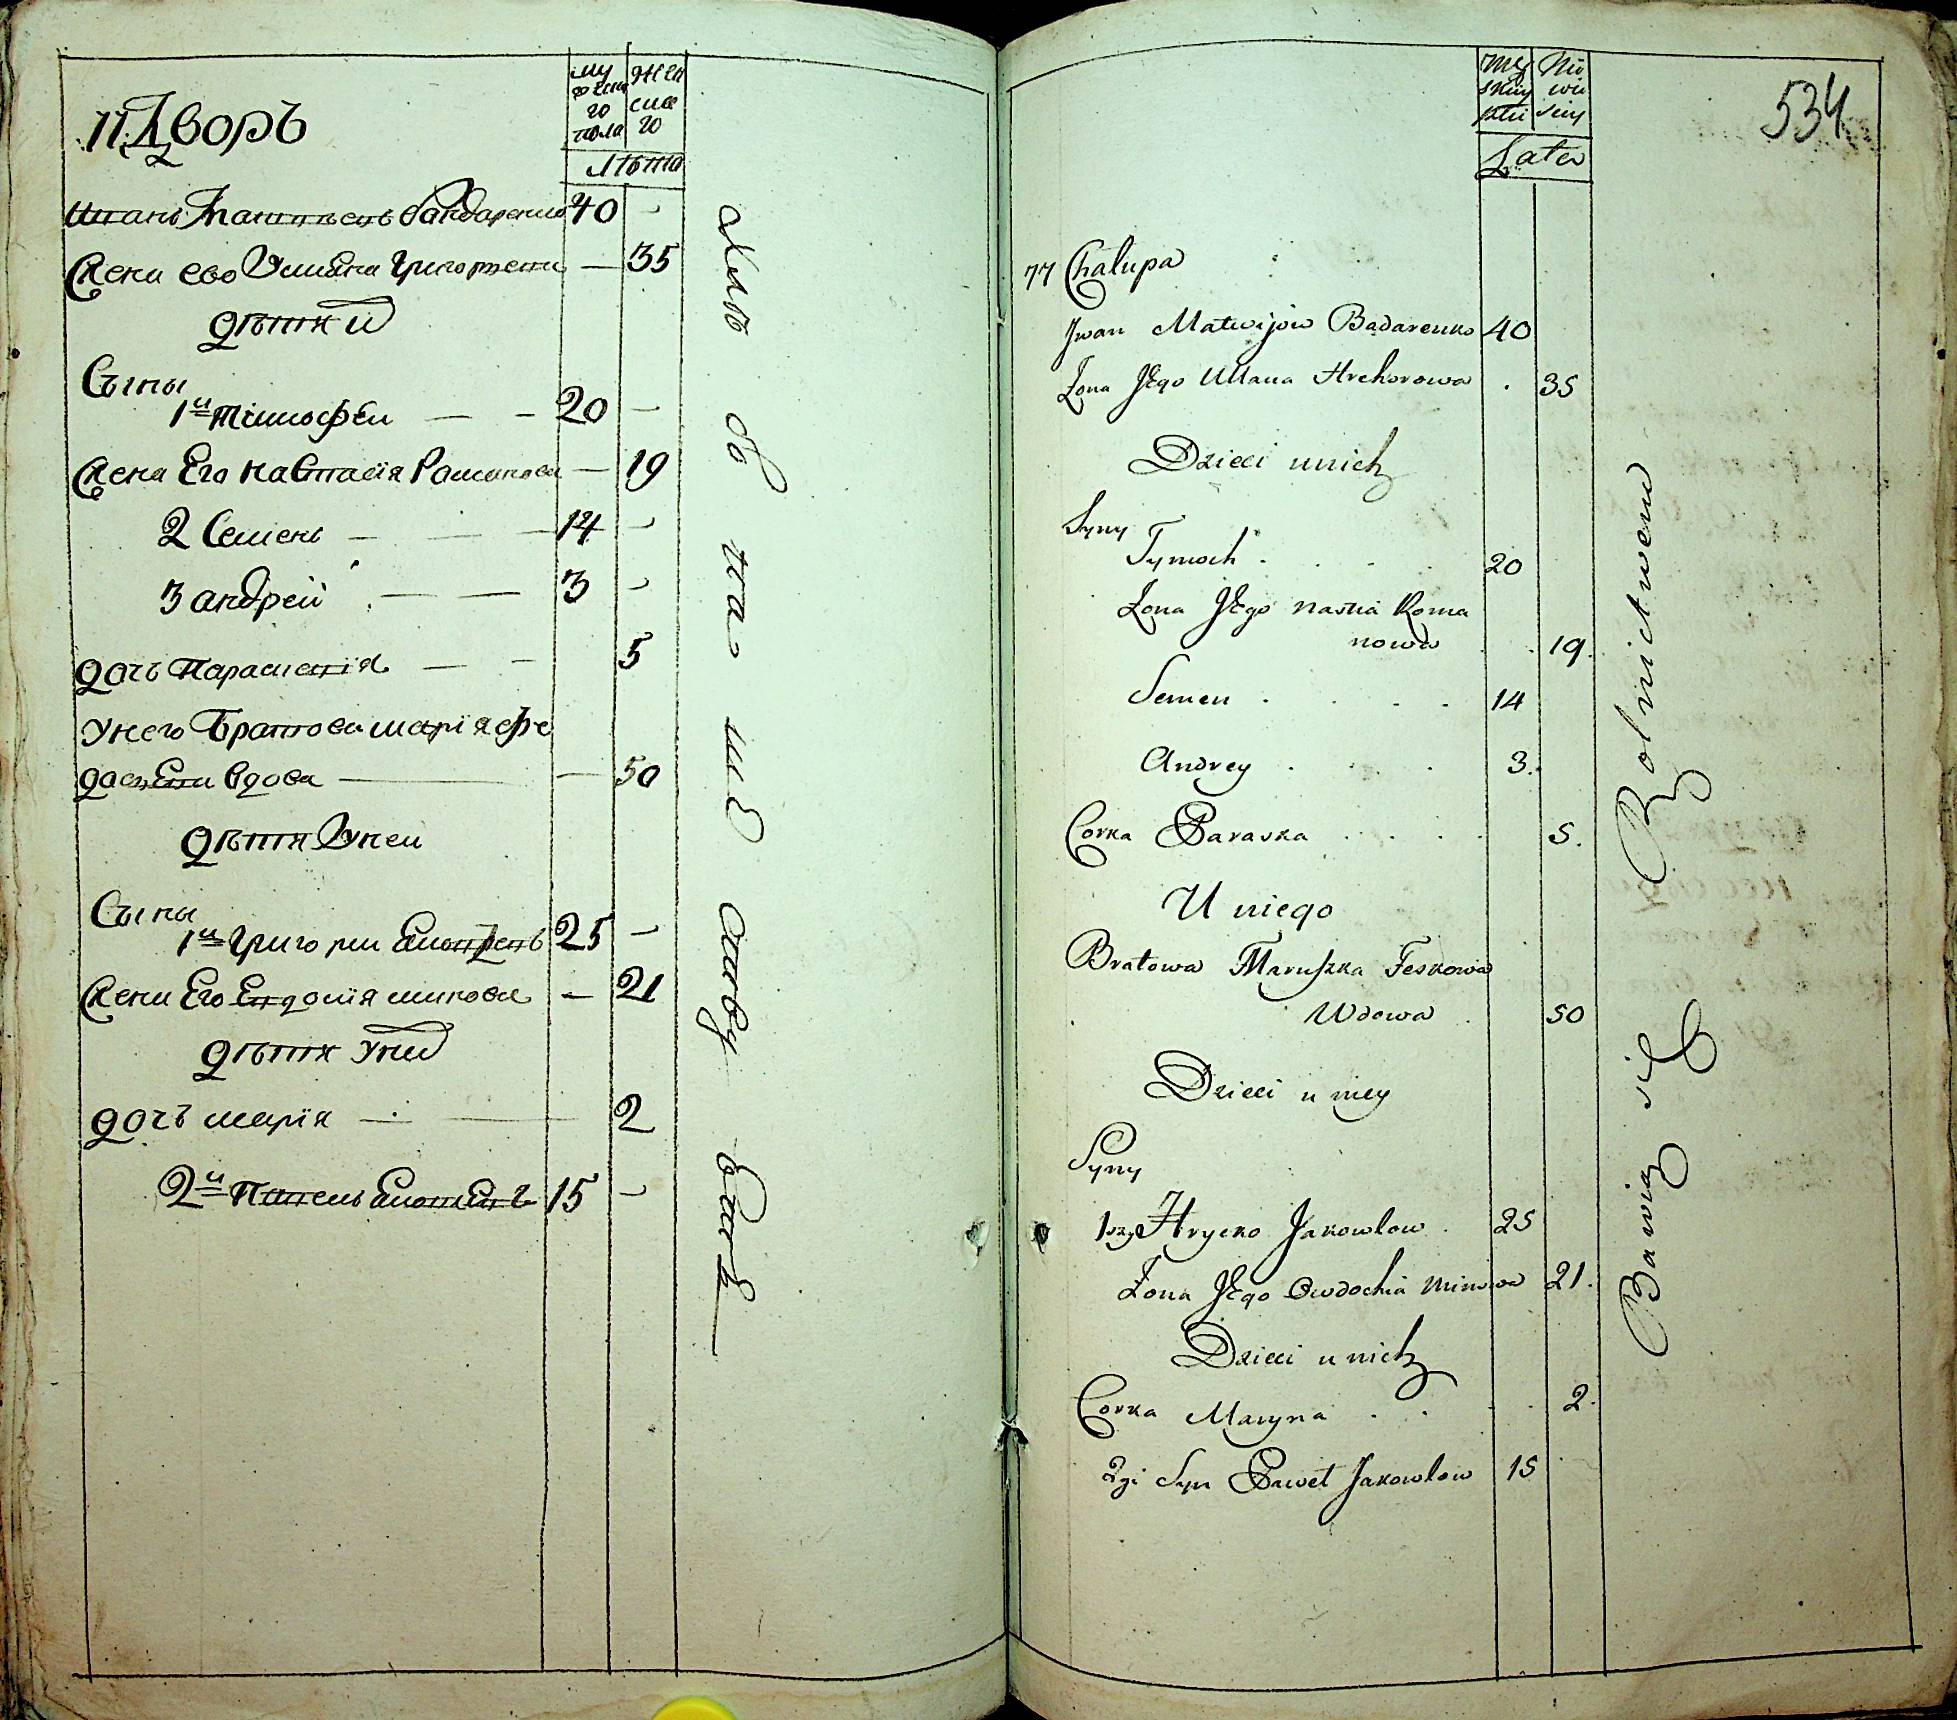 77 Дворъ
му
жеска
го
пола
жен
ска
го
лѣта
Иванъ Матвѣевъ Бандаренко 40 —
Жена ево Улияна Григорьева — 35
дѣти
Сыны
1й Тимофѣй — — 20 —
Жена Его Настасїя Романова — 19
2 Семенъ — — 14 —
3 андрей — — 3 —
дочь Параскевїя — — 5
унего Братова марїя Фе
вдова — 50
дѣти У ней
Сыны
1й Григорий 25 —
Жена Его Евдокїя минова — 21
дѣти у них
дочь марїя — 2
2й Павелъ 15 —
534
Męz
skiey
płci
Nie
wie
sciey
Lata
77 Chalupa
Jwan Matwijow Bądarenko 40
Żona Jego Ullana Hrehorowa . 35
Dzieci unich
Syny
Tymoch . . . . 20
Żona Jego nastia Roma
nowa . . 19.
Semen . . . . 14
Andrey . . . 3.
Corka Paraska . . . . 5.
U niego
Bratowa Maruszka Feskowa
Wdowa . 50
Dzieci u niey
Syny
1szy Hrycko Jakowlow . 25
Żona Jego Owdochia minowa 21.
Dzieci u nich
Corka Maryna . . . . 2.
2gi Syn Paweł Jakowlow 15
Bawią się Rolnictwem